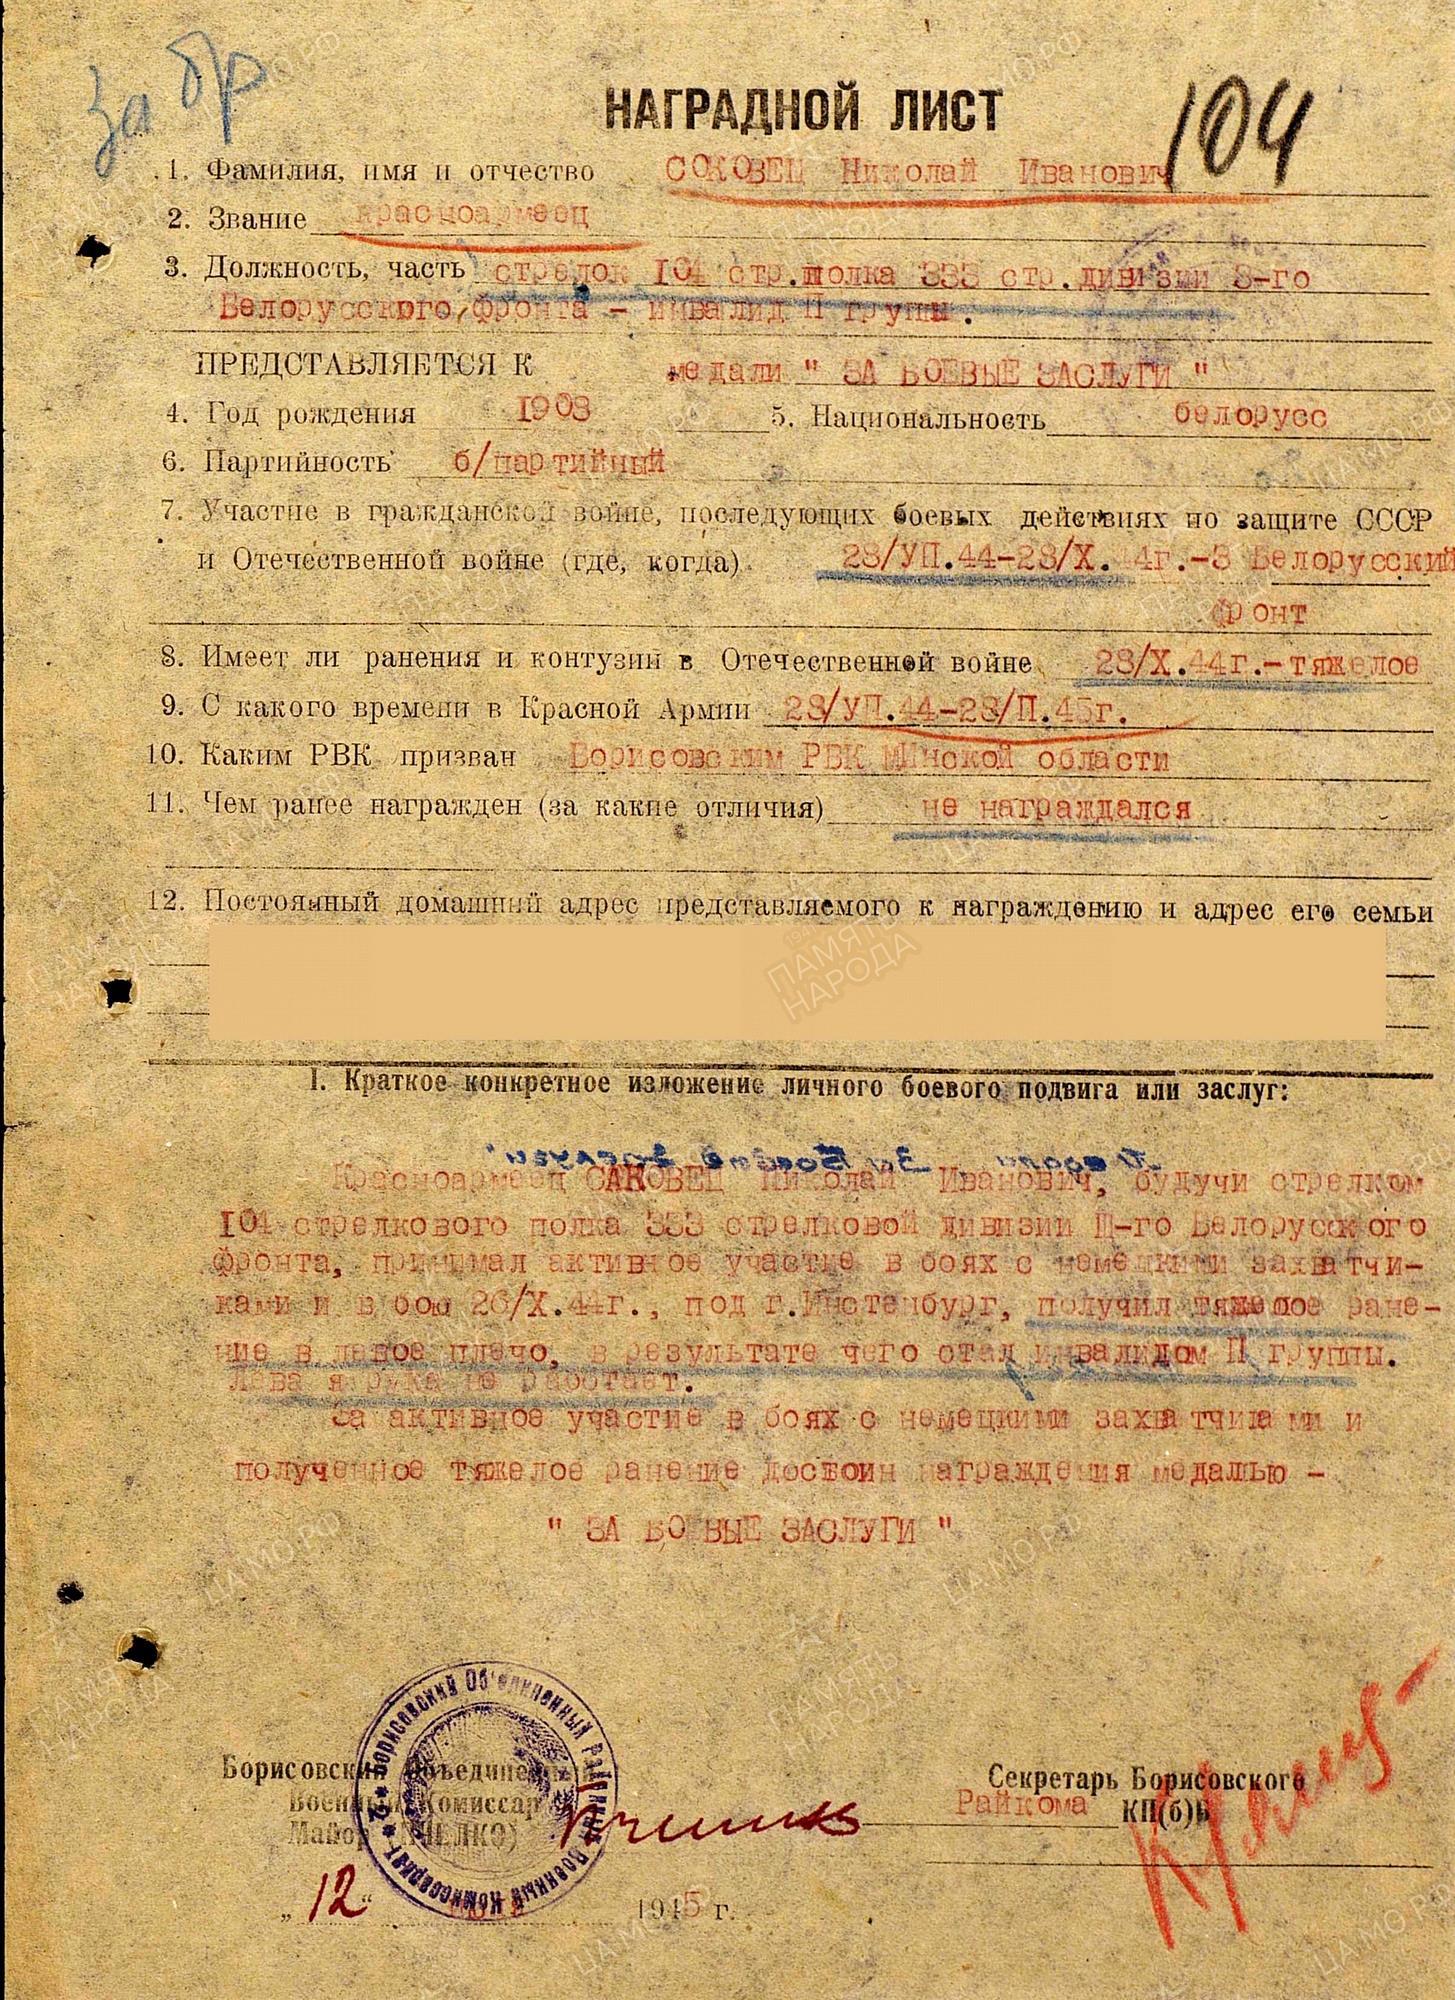 За бр
104
НАГРАДНОЙ ЛИСТ
1. Фамилия, имя и отчество СОКОВЕЦ Николай Иванович
2. Звание красноармеец
3. Должность, часть стрелок 101 стр.полка 333 стр.дивизии 3-го
Белорусского фронта – инвалид П группы.
ПРЕДСТАВЛЯЕТСЯ К медали " ЗА БОЕВЫЕ ЗАСЛУГИ "
4. Год рождения 1908 5. Национальность белорусс
6. Партийность б/партийный
7. Участие в гражданской войне, последующих боевых действиях по защите СССР
и Отечественной войне (где, когда) 28/УП.44-28/Х.44г.-3 Белорусский
фронт
8. Имеет ли ранения и контузии в Отечественной войне 28/Х.44г.-тяжелое
9. С какого времени в Красной Армии 28/УП.44-28/П.45г.
10. Каким РВК призван Борисовским РВК МИнской области
11. Чем ранее награжден (за какие отличия) не награждался
12. Постоянный домашний адрес представляемого к награждению и адрес его семьи
ПАМЯТЬ
НАРОДА
I. Краткое конкретное изложение личного боевого подвига или заслуг:
Медаль „За Боевые Заслуги"
Красноармеец САКОВЕЦ Николай Иванович, будучи стрелком
101 стрелкового полка 333 стрелковой дивизии Ш-го Белорусского
фронта, принимал активное участие в боях с немецкими захватчи-
ками и в бою 26/Х.44г., под г.Инстенбург, получил тяжелое ране-
ние в левое плечо, в результате чего стал инвалидом П группы.
Левая рука не работает.
За активное участие в боях с немецкими захватчиками и
полученное тяжелое ранение достоин награждения медалью –
" ЗА БОЕВЫЕ ЗАСЛУГИ "
Борисовский Объединенный
Военный Комиссар
Майор (ПЧЕЛКО)
Борисовский Об'единенный Районный Военный Комиссариат
Секретарь Борисовского
Райкома КП(б)Б
„12" 1945 г.